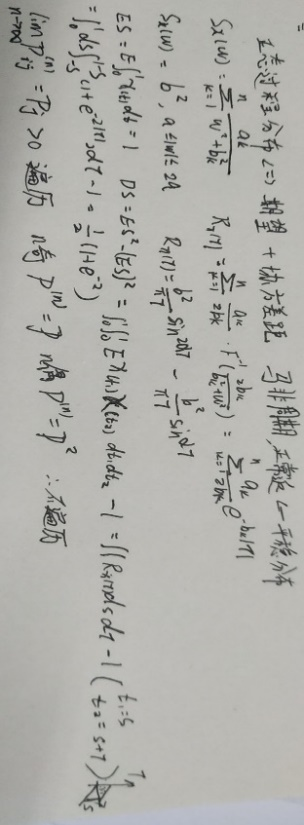 正态过程分布 <=> 期望 + 协方差矩 马非周期，正常返 <- 平稳分布
Sx(ω) = Σ_{k=1}^{n} a_k/(ω²+b_k²) Rx(τ) = Σ_{k=1}^{n} a_k/(2b_k) · F⁻¹(2b_k/(b_k²+ω²)) = Σ_{k=1}^{n} a_k/(2b_k) e^{-b_k|τ|}
Sx(ω) = b², a≤|ω|≤2a Rx(τ) = b²/(πτ) sin2aτ - b²/(πτ) sin aτ
ES = E∫₀¹x(t)dt = 1 DS = ES²-(ES)² = ∫₀¹∫₀¹EX(t₁)X(t₂)dt₁dt₂ - 1 = ∬Rx(τ)dsdτ - 1 (t₁=s t₂=s+τ)
= ∫₀¹ds∫_{-s}^{1-s}(1+e^{-2|τ|})dτ - 1 = ½(1+e^{-2})
lim_{n→∞} P_{ij}^{(n)} = P_j > 0 遍历 n奇 P^{(n)} = P n偶 P^{(n)} = P² ∴不遍历